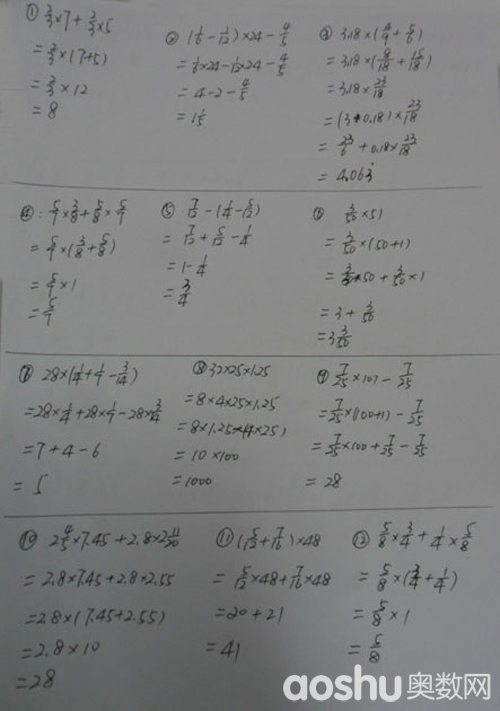 ① 2/3×7+2/3×5
=2/3×(7+5)
=2/3×12
=8
② (1/6-1/12)×24-4/5
=1/6×24-1/12×24-4/5
=4-2-4/5
=1 1/5
③ 3.18×(4/9+5/6)
=3.18×(8/18+15/18)
=3.18×23/18
=(3+0.18)×23/18
=23/6+0.18×23/18
=4.063
④ 5/7×3/8+5/8×5/7
=5/7×(3/8+5/8)
=5/7×1
=5/7
⑤ 7/12-(1/4-5/12)
=7/12+5/12-1/4
=1-1/4
=3/4
3/50×51
=3/50×(50+1)
=3/50×50+3/50×1
=3+3/50
=3 3/50
28×(1/4+1/7-3/14)
=28×1/4+28×1/7-28×3/14
=7+4-6
=5
⑧ 32×25×1.25
=8×4×25×1.25
=8×1.25×(4×25)
=10×100
=1000
⑨ 7/25×101-7/25
=7/25×(100+1)-7/25
=7/25×100+7/25-7/25
=28
⑩ 2 4/5×7.45+2.8×2 11/20
=2.8×7.45+2.8×2.55
=2.8×(7.45+2.55)
=2.8×10
=28
⑪ (5/12+7/16)×48
=5/12×48+7/16×48
=20+21
=41
⑫ 5/8×3/4+1/4×5/8
=5/8×(3/4+1/4)
=5/8×1
=5/8
aoshu奥数网